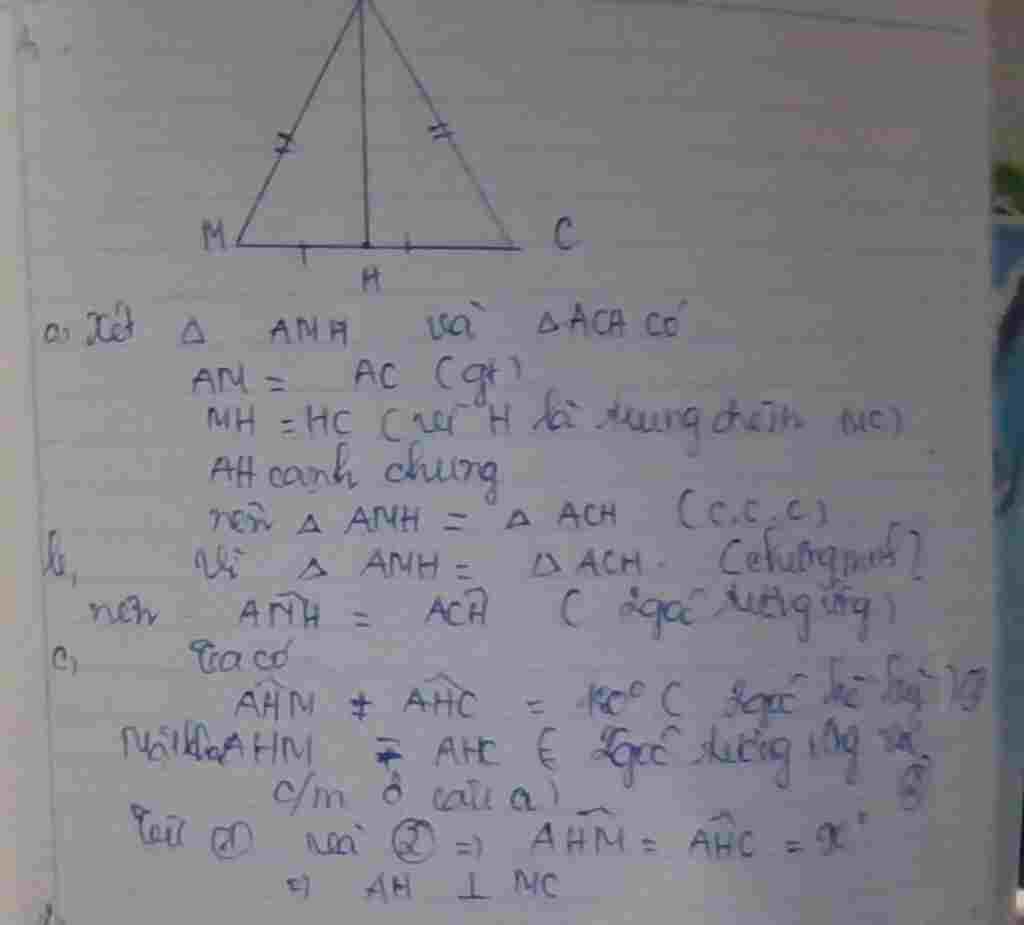 M C
H
a, Xét Δ AMH và Δ ACH có
AM = AC (gt)
MH = HC (vì H là trung điểm MC)
AH cạnh chung
nên Δ AMH = Δ ACH (c.c.c)
b, Vì Δ AMH = Δ ACH
nên AMH = ACH ( 2 góc tương ứng)
c, Ta có
AHM + AHC = 180° ( 2 góc kề bù ) ①
Mà AHM = AHC ( 2 góc tương ứng
c/m ở câu a) ②
Từ ① và ② => AHM = AHC =
=> AH ⊥ MC